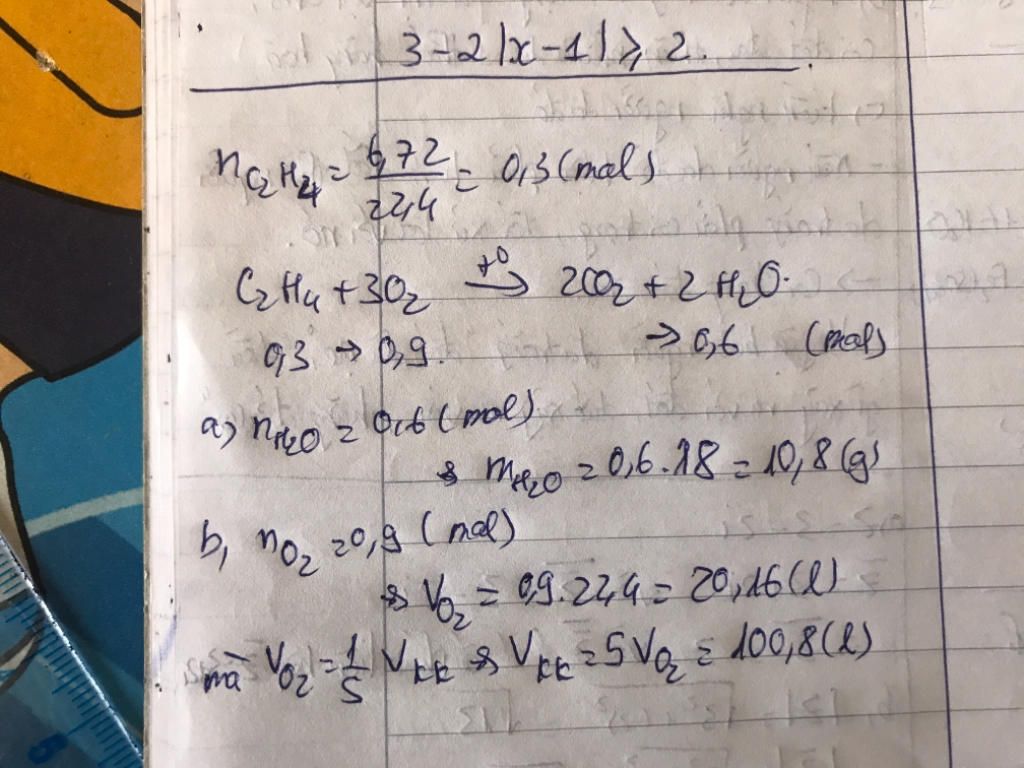 3 - 2|x - 1| ≥ 2.
nC₂H₄ = 6,72/22,4 = 0,3 (mol)
C₂H₄ + 3O₂ →(t⁰) 2CO₂ + 2H₂O.
0,3 → 0,9. → 0,6 (mol)
a) nH₂O = 0,6 (mol)
⇒ mH₂O = 0,6.18 = 10,8 (g)
b, nO₂ = 0,9 (mol)
⇒ VO₂ = 0,9.22,4 = 20,16 (l)
mà VO₂ = 1/5 VKK ⇒ VKK = 5VO₂ = 100,8 (l)
5